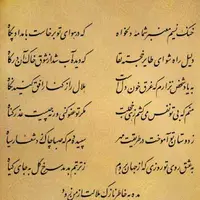 خنک نسیم معنبر شمامه دلخواه که در هوای تو برخاست بامداد پگاه
دلیل راه شو ای طایر خجسته لقا که دیده آب شد از شوق خاک آن درگاه
به یاد شخص نزارم که غرق خون دل است هلال را ز کنار افق کنید نگاه
منم که بی تو نفس می‌کشم زهی خجلت مگر تو عفو کنی ورنه چیست عذر گناه
ز دوستان تو آموخت در طریقت مهر سپیده دم که صبا چاک زد شعار سیاه
به عشق روی تو روزی که از جهان بروم ز تربتم بدمد سرخ گل به جای گیاه
مده به خاطر نازک ملالت از من زود